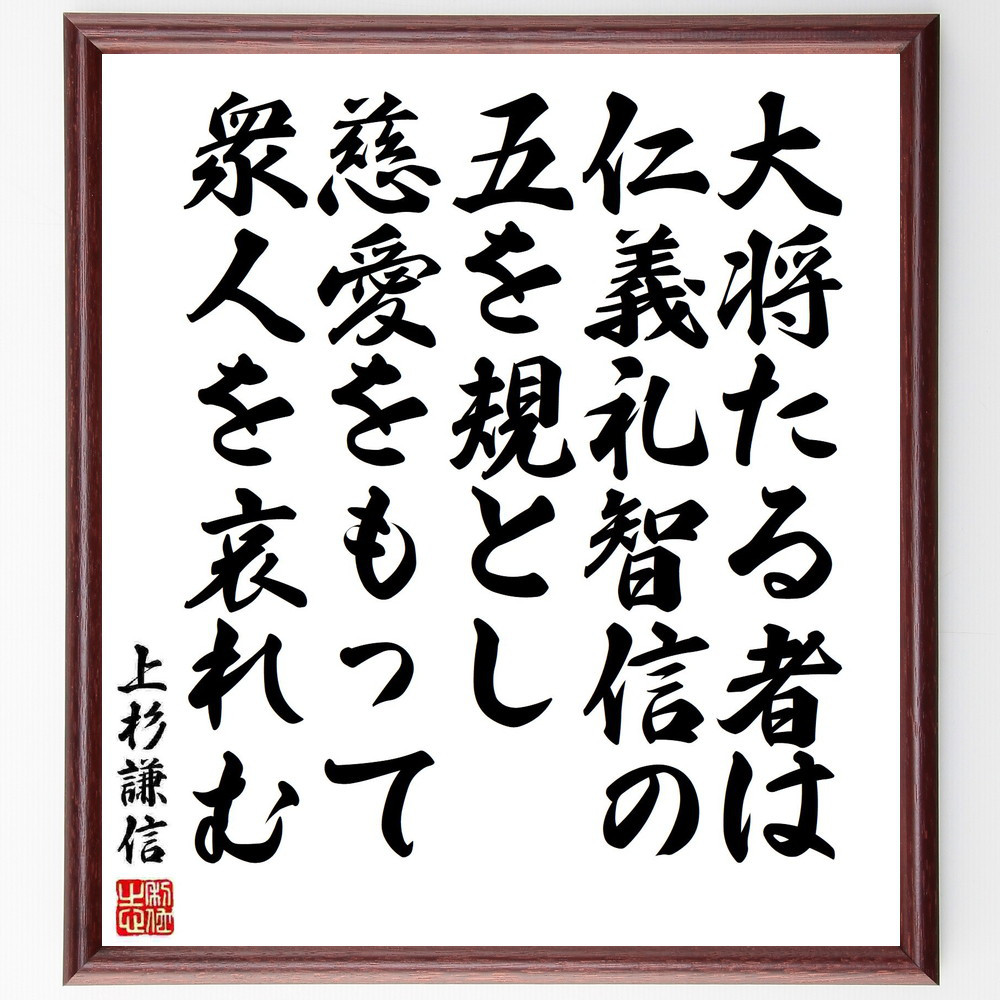 大将たる者は
仁義礼智信の
五を規とし
慈愛をもって
衆人を哀れむ
上杉謙信